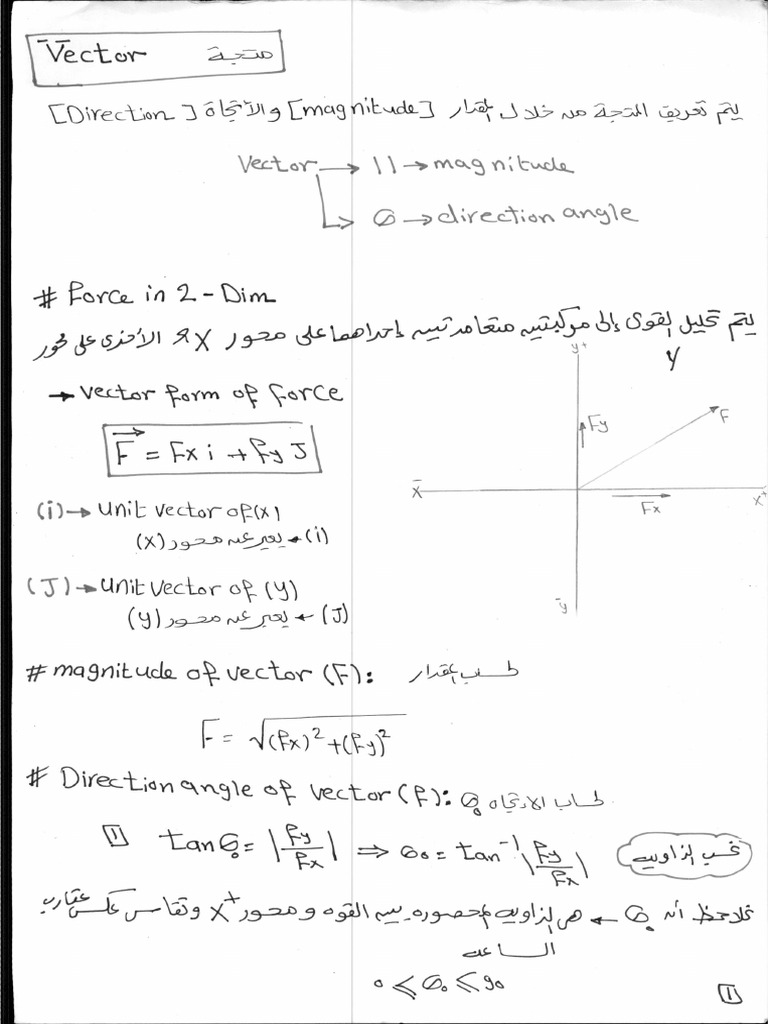 Vector متجة
يتم تعريف المتجة من خلال المقدار [magnitude] والأتجاة [Direction]
Vector → | | → magnitude
θ → direction angle
# Force in 2 - Dim
يتم تحليل القوى إلى مركبتيه متعامدتيه إحداهما على محور X و الأخرى على محور
y
→ Vector form of force
F⃗ = Fx i + Fy J
(i) → Unit vector of (x)
(i) ← يعبر عن محور (x)
(J) → Unit vector of (y)
(J) ← يعبر عن محور (y)
y+
F
Fy
x̄
x+
Fx
ȳ
# magnitude of vector (F): لحساب المقدار
F = √(Fx)² + (Fy)²
# Direction angle of vector (F): لحساب الاتجاه θ₀
[1] tan θ₀ = |Fy/Fx| ⇒ θ₀ = tan⁻¹ |Fy/Fx| نحسب الزاويه
نلاحظ أن θ₀ ← هى الزاويه المحصوره بيه القوه و محور x+ وتقاس عكس عقارب
الساعه
0 ≤ θ₀ ≤ 90
[1]